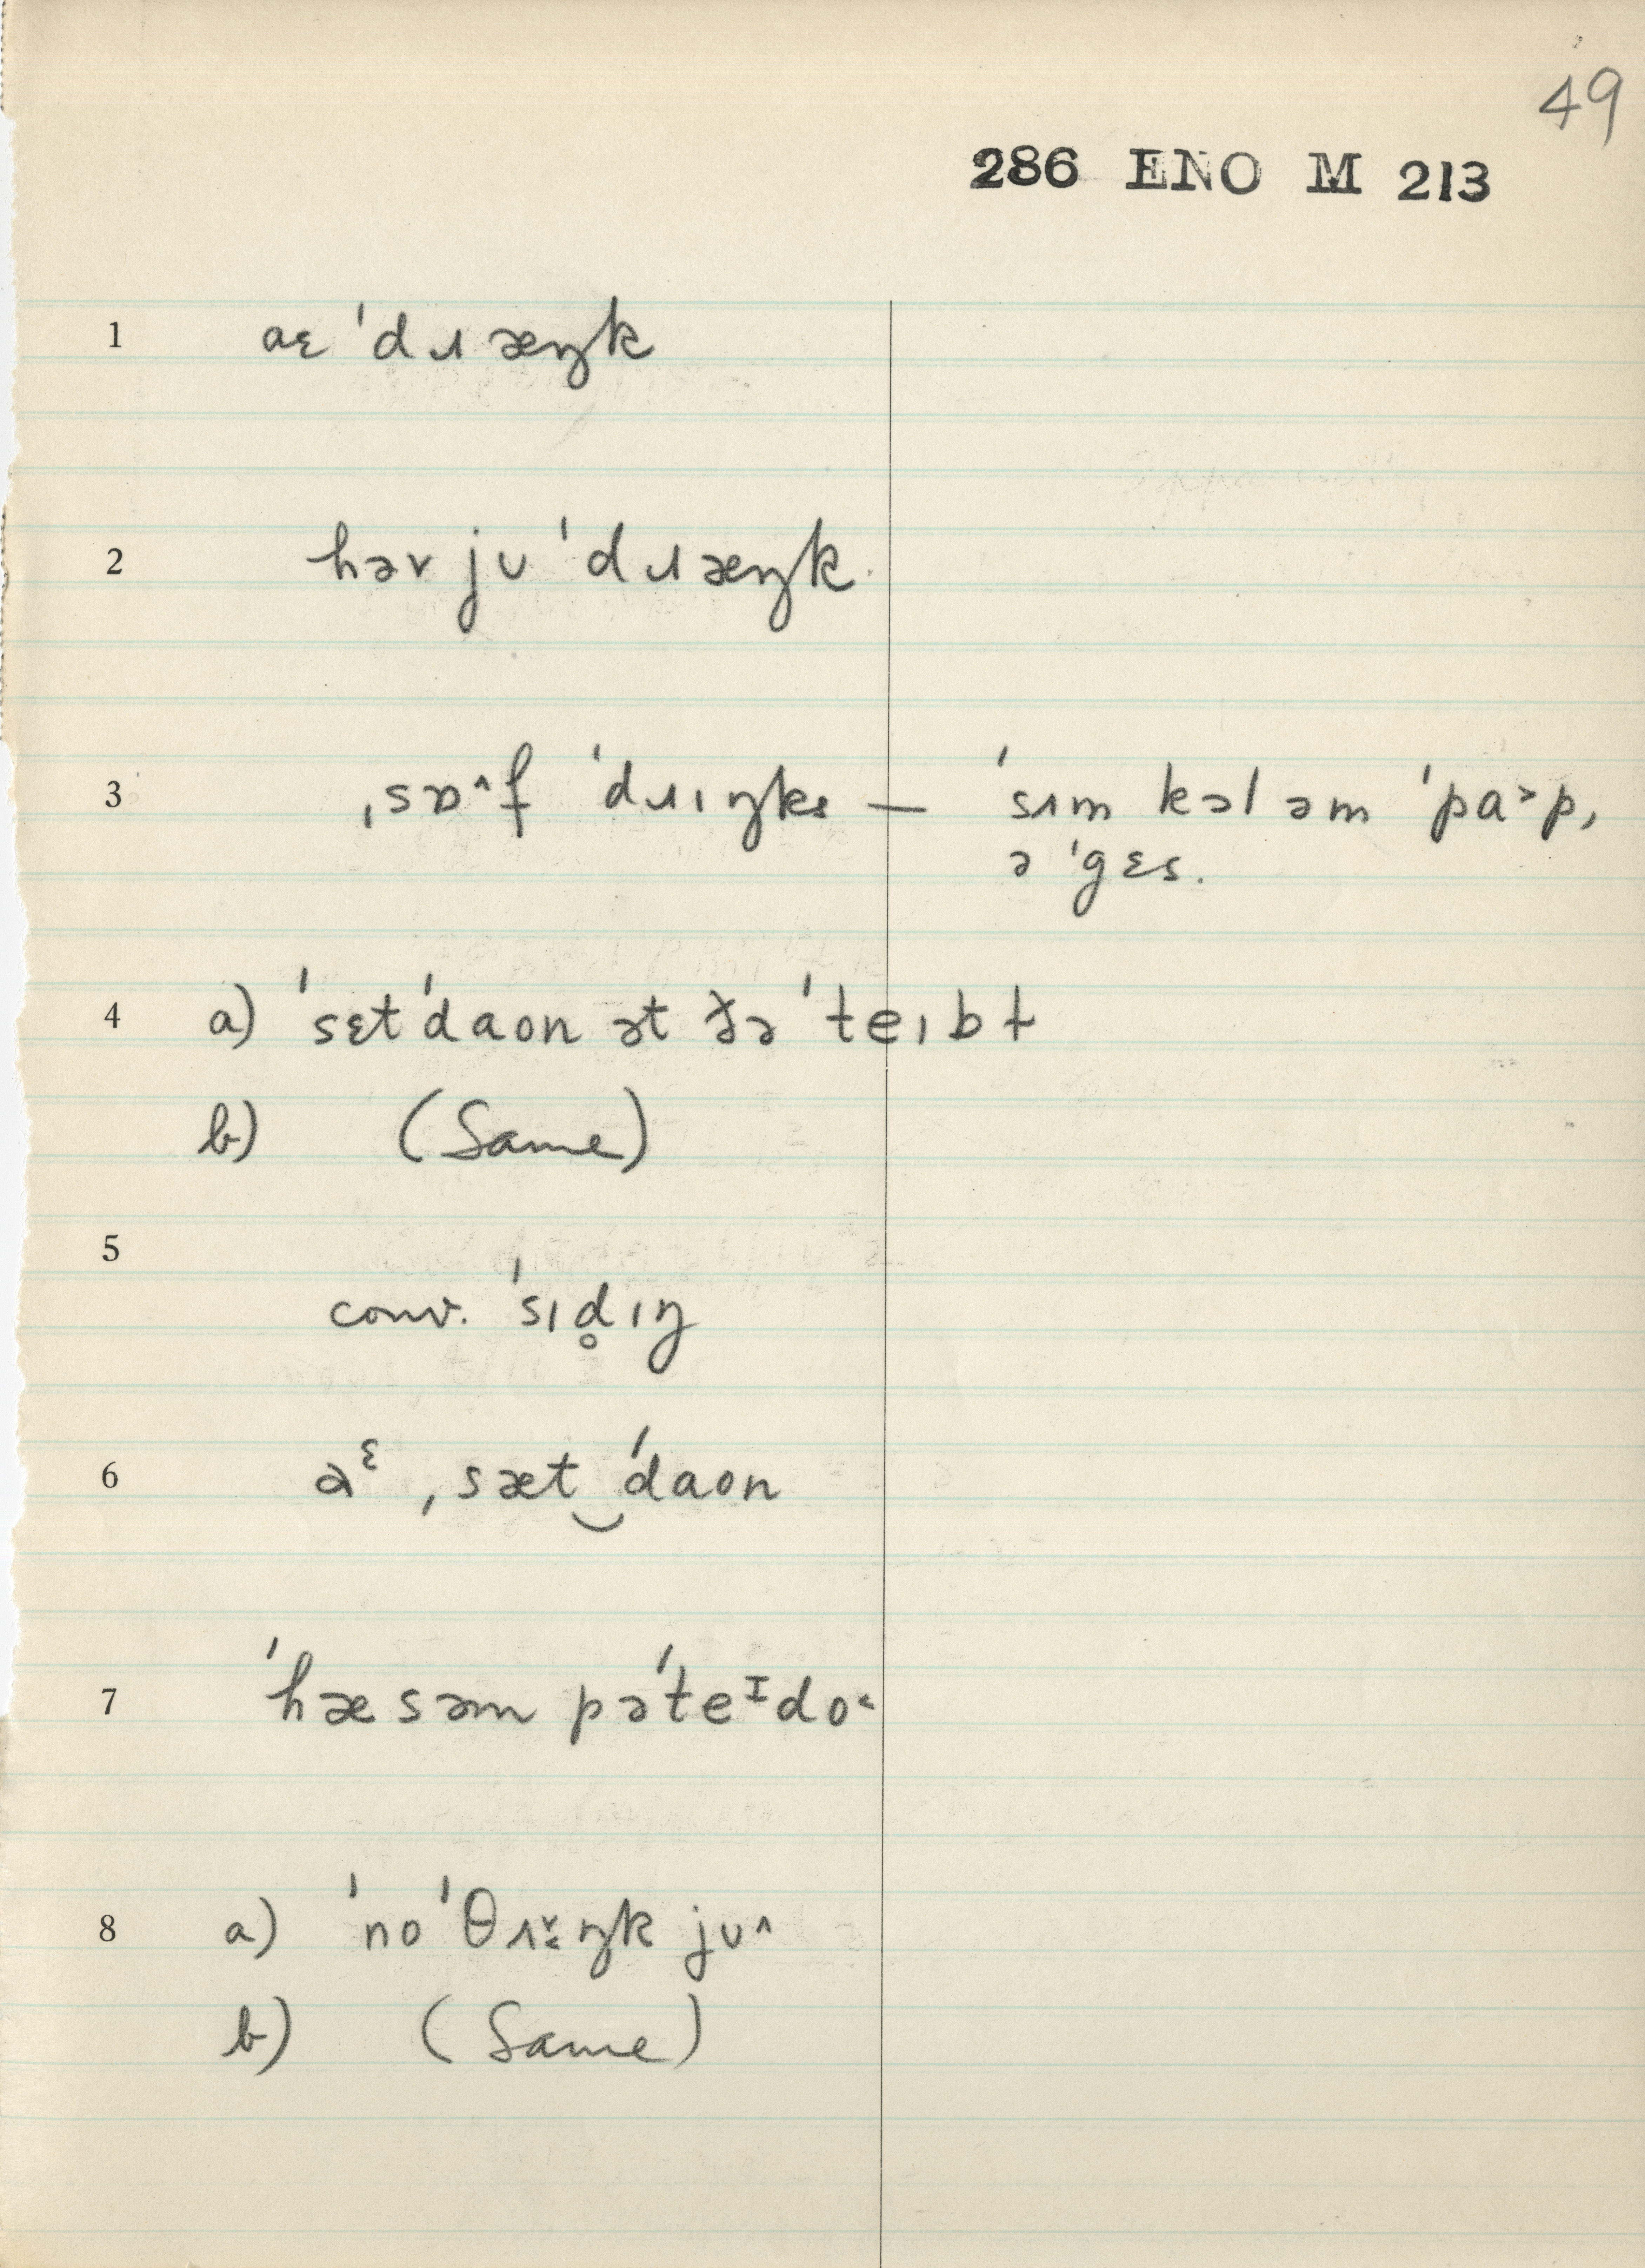 49
286 ENO M 213
1 aɛ ˈdɹæŋk
2 həv jʊ ˈdɹæŋk
3 ˌsɒ˄f ˈdɹɪŋks — ˈsɪm kəl əm ˈpa˃p,
ə ˈgɛs.
4 a) ˈsɛt ˈdaon ət ðə ˈteɪbɫ
b) (Same)
5
conv. ˈsɪd̥ɪŋ
6 aᵋ ˌsæt‿ˈdaon
7 ˈhæ səm pəˈteᴵdo˂
8 a) ˈno ˈθɪ̞̌ŋk jʊ˄
b) (Same)